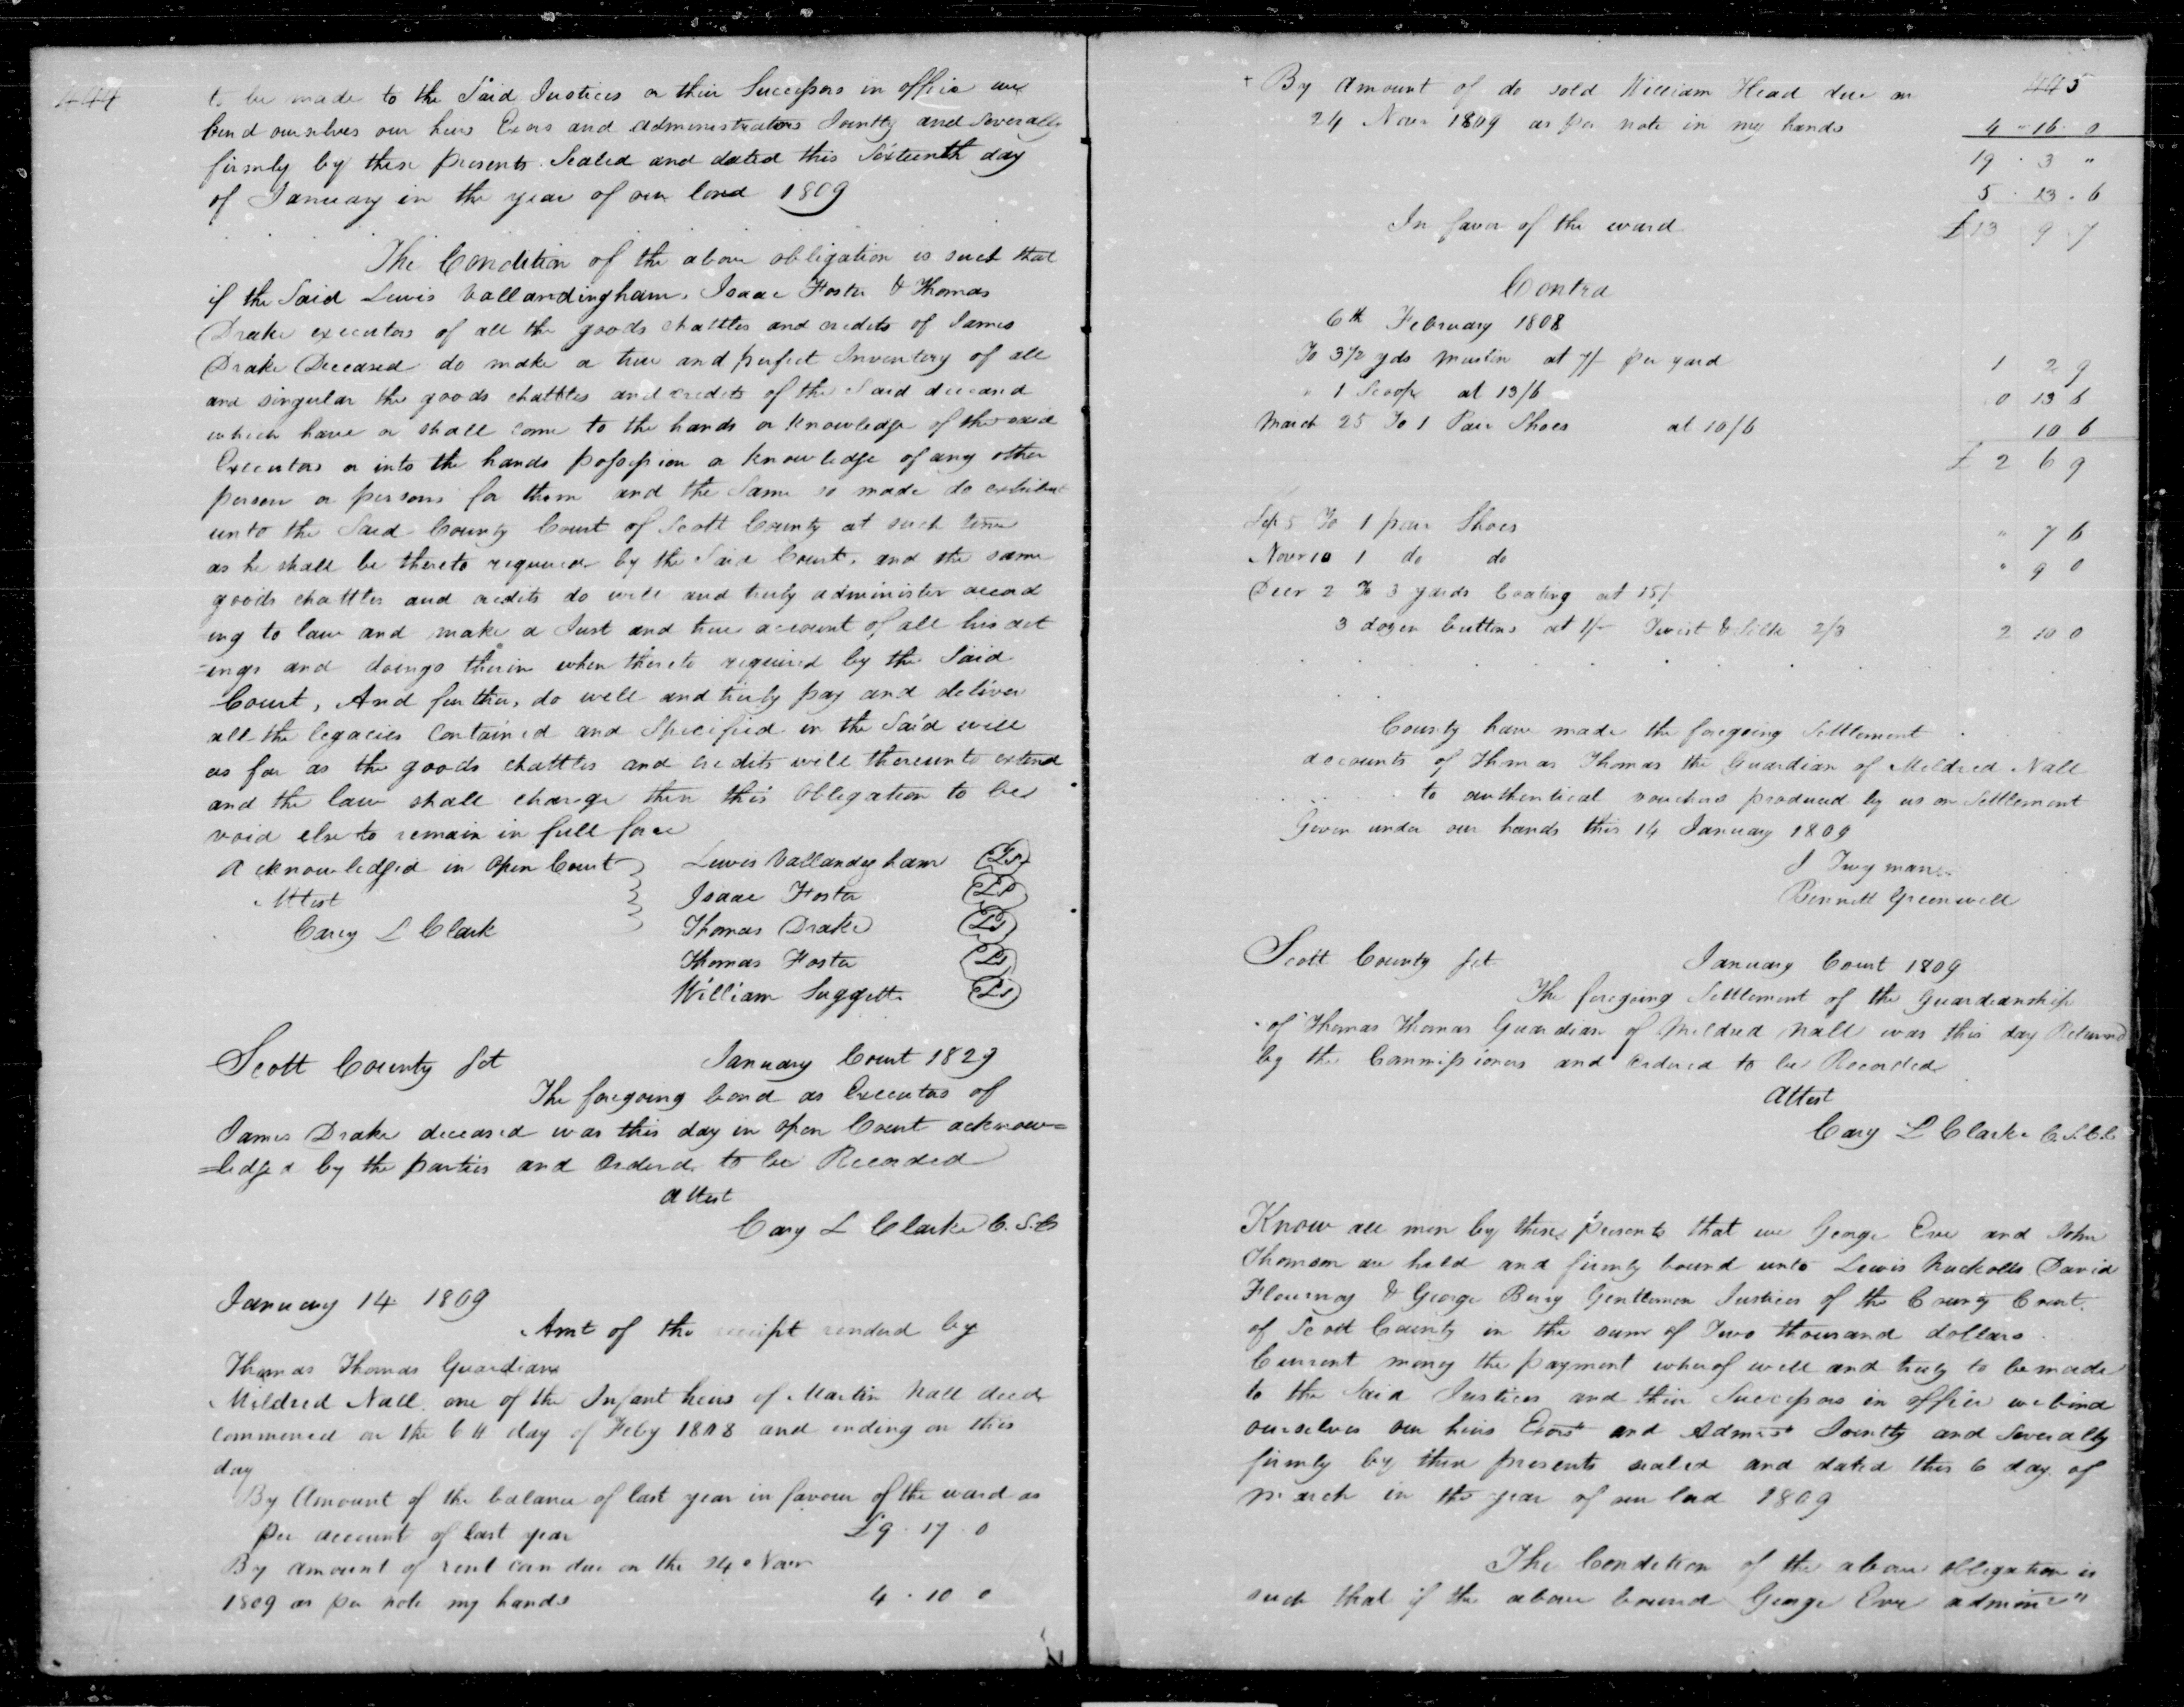 444
to be made to the Said Justices or their Successors in office we
bind ourselves our heirs Exors and administrators Jointly and Severally
firmly by these presents. Sealed and dated this Sixteenth day
of January in the year of our lord 1809
The Condition of the above obligation is such that
if the Said Lewis Vallandingham, Isaac Foster & Thomas
Drake executors of all the goods chattles and credits of James
Drake Deceased do make a true and perfect Inventory of all
and singular the goods chattles and credits of the Said deceased
which have or shall come to the hands or knowledge of the said
Executors or into the hands possession or knowledge of any other
person or persons for them and the Same so made do exhibit
unto the Said County Court of Scott County at such time
as he shall be thereto required by the Said Court, and the same
goods chattles and credits do well and truly administer accord
ing to law and make a Just and true account of all his act
-ings and doings therein when thereto required by the Said
Court, And further, do well and truly pay and deliver
all the legacies Contained and Specified in the Said will
as far as the goods chattles and credits will thereunto extend
and the law shall charge then this Obligation to be
void else to remain in full force
Acknowledged in Open Court Lewis Vallandegham Ls
Attest Isaac Foster Ls
Cary L Clark Thomas Drake Ls
Thomas Foster Ls
William Suggett Ls
Scott County Sct January Court 1829
The foregoing bond as Executors of
James Drake deceased was this day in open Court acknow=
=ledged by the parties and Ordered to be Recorded
Attest
Cary L Clarke C.S.C
January 14 1809
Amt of the receipt rendered by
Thomas Thomas Guardian
Mildred Nall one of the Infant heirs of Martin Nall decd
commenced on the 6th day of Feby 1808 and ending on this
day
By Amount of the balance of last year in favour of the ward as
per account of last year £9 . 17 . 0
By amount of rent can due on the 24 Novr
1809 as per note my hands 4 . 10 0
445
+ By Amount of do sold William Head due on
24 Novr 1809 as per note in my hands 4 " 16 . 0
19 . 3 "
5 . 13 . 6
In favor of the ward £13 9 7
Contra
6th February 1808
To 3 1/2 yds muslin at 7/ per yard 1 2 9
" 1 Scoop at 13/6 0 13 6
March 25 To 1 Pair Shoes at 10/6 10 6
£ 2 6 9
Sep 5 To 1 pair Shoes " 7 6
Novr 10 1 do do " 9 0
Decr 2 To 3 yards Coating at 15/
3 dozen buttons at 1/- Twist & Silk 2/3 2 10 0
County have made the foregoing Settlement
accounts of Thomas Thomas the Guardian of Meldred Nall
to authentical vouchers produced by us on Settlement
Given under our hands this 14 January 1809
J Twyman
Bennett Greenwell
Scott County Sct January Court 1809
The foregoing Settlement of the Guardianship
of Thomas Thomas Guardian of Mildred Nall was this day Returned
by the Commissioners and Ordered to be Recorded
Attest
Cary L Clarke C.S.C.C
Know all men by these presents that we George Eve and John
Thomson are held and firmly bound unto Lewis Nuckolls David
Flournoy & George Berry Gentlemen Justices of the County Court
of Scott County in the sum of Two thousand dollars
Current money the payment whereof well and truly to be made
to the Said Justices and their Successors in office we bind
ourselves our heirs Exors and Admrs Jointly and Severally
firmly by these presents sealed and dated this 6 day of
march in the year of our lord 1809
The Condition of the above obligation is
such that if the above bound George Eve admin